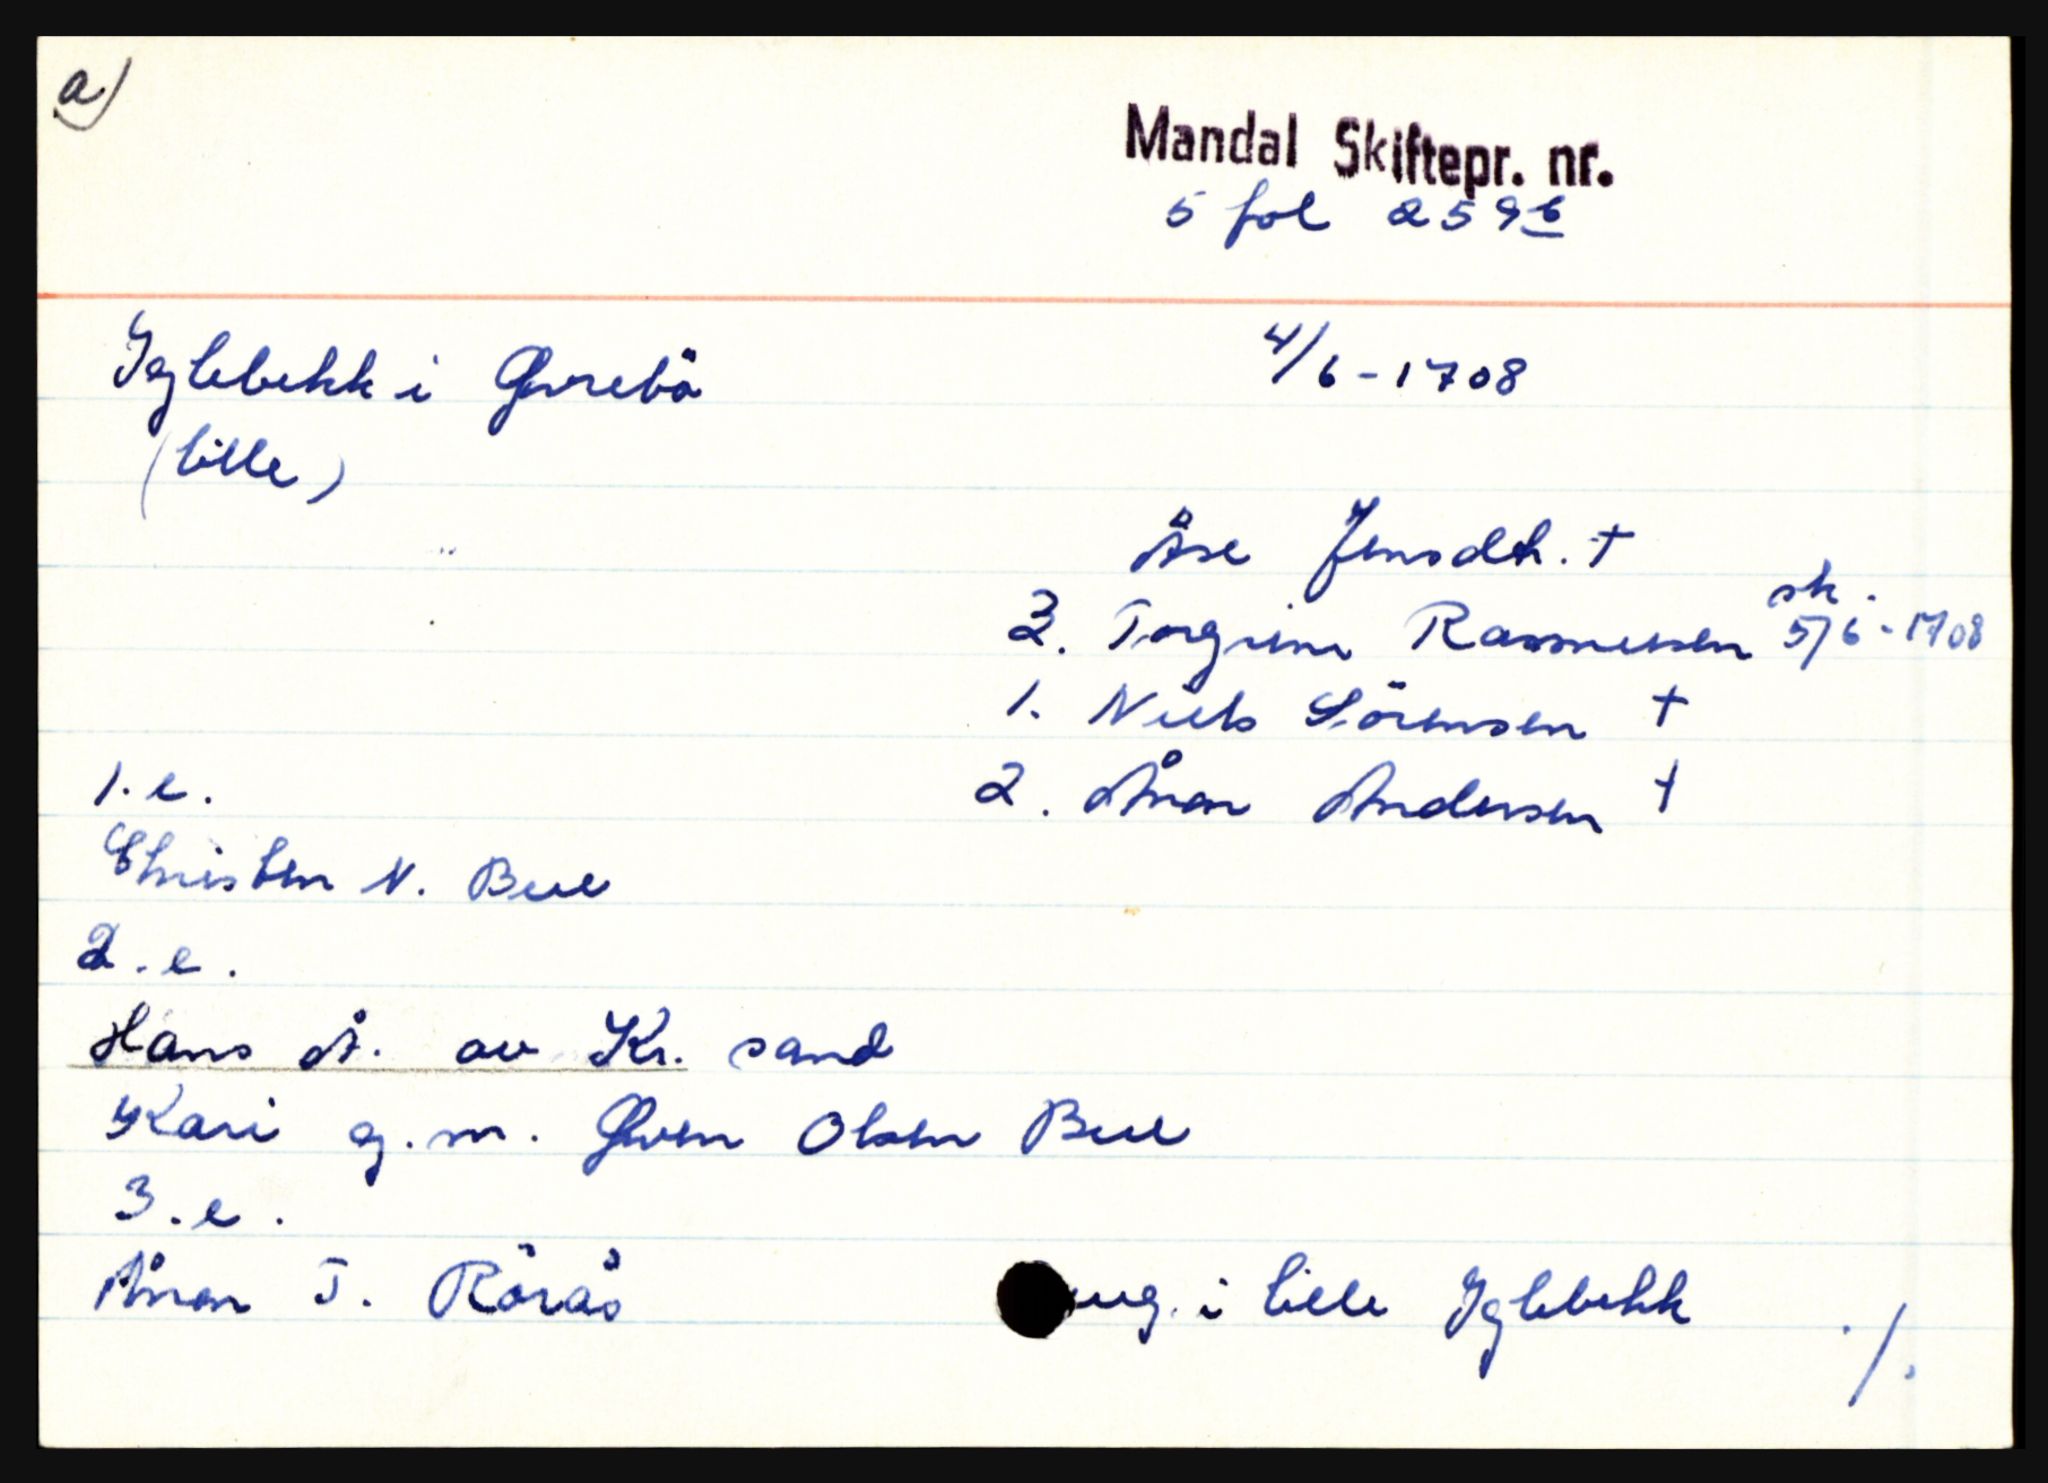 a)
Mandal Skiftepr. nr.
5 fol 259b
Iglebekk i Øvrebö 4/6-1708
(lille)
Åse Jensdtr. †
sk.
3. Torgrim Rasmussen 5/6-1708
1. Niels Sörensen †
1.e. 2. Ånon Andersen †
Christen N. Bue
2.e.
Hans Å. av Kr. sand
Kari g.m. Even Olsen Bue
3.e.
Ånon T. Rörås i lille Iglebekk ./.